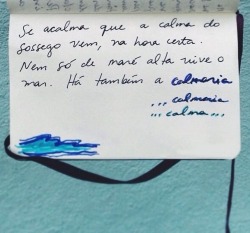 Se acalma que a calma do
sossego vem, na hora certa.
Nem só de maré alta vive o
mar. Há também a calmaria
... calmaria
... calma ...